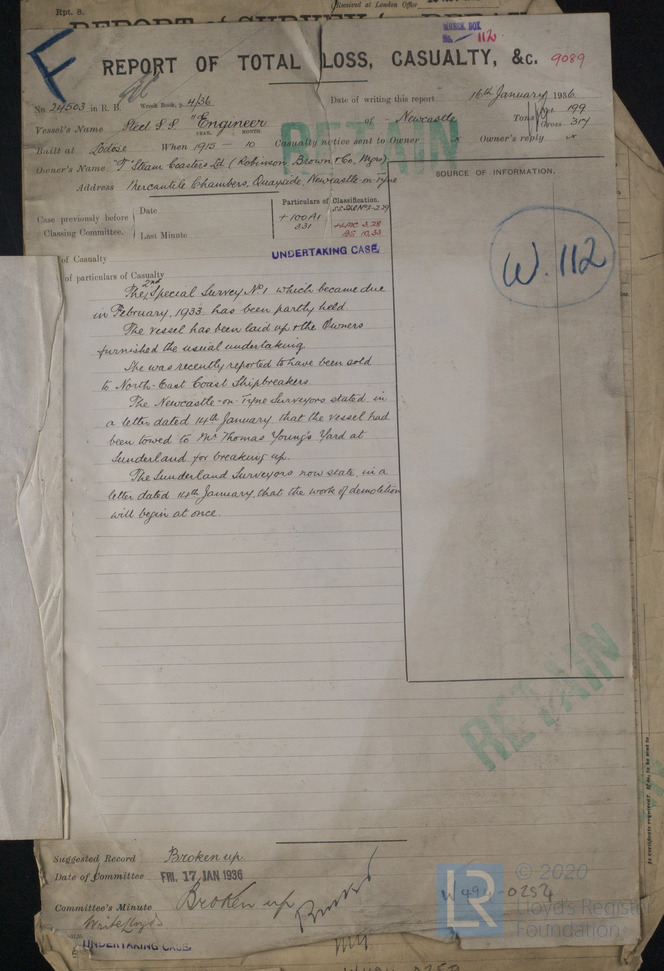 Rpt. 8.
Received at London Office
WRECK BOX
No. 112
REPORT OF TOTAL LOSS, CASUALTY, &c. 9089
No 24503 in R. B. Wreck Book, p. 4/36 Date of writing this report 16th January 1936
Vessel's Name Steel S.S. "Engineer of Newcastle Tons Net 199 Gross 317
Built at Lodose When 1915 YEAR. MONTH. 10 Casualty notice sent to Owner x Owner's reply x
Owner's Name "T" Steam Coasters Ltd (Robinson Brown & Co, Mgrs)
Address Mercantile Chambers, Quayside, Newcastle-on-Tyne
RETAIN
SOURCE OF INFORMATION.
Case previously before Classing Committee. Date
Last Minute
Particulars of Classification.
+100A1
3.31
UNDERTAKING CASE.
W. 112
of Casualty
of particulars of Casualty
The 2nd Special Survey No 1 which became due
in February, 1933 has been partly held.
The vessel has been laid up & the Owners
furnished the usual undertaking.
She was recently reported to have been sold
to North-East Coast Shipbreakers.
The Newcastle-on-Tyne Surveyors stated in
a letter dated 14th January that the vessel had
been towed to Mr Thomas Young's Yard at
Sunderland for breaking up.
The Sunderland Surveyors now state, in a
letter dated 14th January, that the work of demolition
will begin at once.
RETAIN
Suggested Record Broken up.
Date of Committee FRI. 17 JAN 1936
Committee's Minute Broken up
UNDERTAKING CASE.
W490-0252
LR
© 2020
Lloyd's Register
Foundation